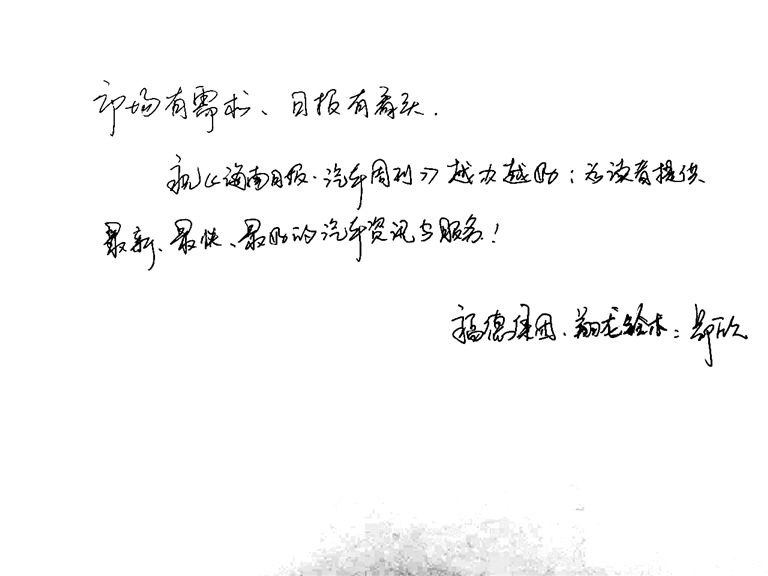 市场有需求、日报有看头.
祝《海南日报·汽车周刊》越办越好；为读者提供
最新、最快、最好的汽车资讯与服务！
福德集团.翔龙铃木：郑欣